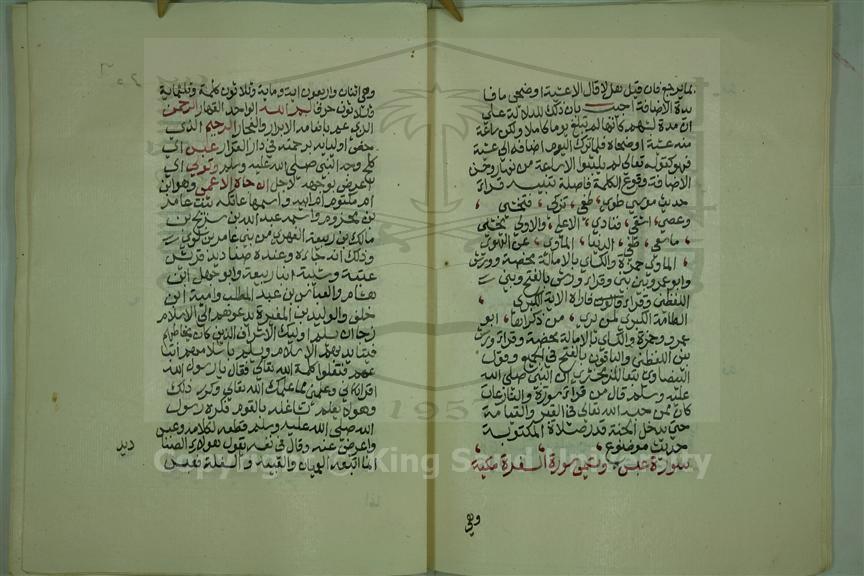 نمابرحوفان قيل هلا قال الا عشية او ضحى مافا
ئدة الاضافة اجيب بان ذلك للدلالة على
ان مدة لبثهم كانها لم تبلغ يوما كاملا ولكن ساعة
منه عشية او ضحاه فلما ترك اليوم اضافه الى عشية
فهو كقوله تعالى لم يلبثوا الا ساعة من نهار وحسن
الاضافة وقوع الكلمة فاصلة تنبيه قراءة
حديث موسى طوى، طغى، تزكى، فتخشى،
وعصى، اتقى، فنادى، الاعلى، والاولى يخشى
، ماسعى، طغى، الدنيا، الماوى، عن الهوى
، الماوى حمزة والكسائي بالامالة محضة وورش
وابو عمرو بين بين وقرا ورش بالفتح وبين
اللفظين وقرا قالون فاراه الاية الكبرى
الطامة الكبرى لمن يرى، من ذكراها، ابو
عمرو وحمزة والكسائي بالامالة محضة وقراء ورش
بين اللفظين والباقون بالفتح في الجميع وقول
البيضاوي تبعا للزمخشري ان النبي صلى الله
عليه وسلم قال من قرا سورة والنازعات
كان ممن حبسه الله تعالى في القبر والقيامة
حتى يدخل الجنة قدر صلاة المكتوبة
حديث موضوع
سورة عبس، وتسمى سورة السفرة مكية
وهي
وهي اثنان واربعون اية وماية وثلاثون كلمة وثلثماية
وثلاثون حرفا بسم الله الواحد القهار الرحمن
الذي عم بانعامه الابرار والفجار الرحيم الذي
خص اولياءه برحمته في دار القرار عبس اي
كلح وجه النبي صلى الله عليه وسلم وتولى اي
اعرض بوجهه لاجل ان جاه الاعمى وهو ابن
ام مكتوم ام ابيه واسمها عاتكة بنت عامر
بن مخزوم واسمه عبد الله بن سريح بن
مالك بن ربيعة الفهري من بني عامر بن لوي
وذلك انه جاءه وعنده صناديد قريش
عتبة وشيبة ابنا ربيعة وابو جهل ابن
هشام والعباس بن عبد المطلب وامية ابن
خلف والوليد بن المغيرة يدعوهم الى الاسلام
رجا ان يسلم اوليك الاشراف الذين كان يخاطبهم
فيتايد بهم الاسلام ويسلم باسلامهم اتبا
عهم فتعلوا كلمة الله تعالى فقال يا رسول الله
اقراني وعلمني مما علمك الله تعالى وكرر ذلك
وهو لا يعلم تشاغله بالقوم فكره رسول
الله صلى الله عليه وسلم قطعه لكلامه وعبس
واعرض عنه وقال في نفسه يقول هولاء الصنا
ديد
انما اتبعه العميان والعبيد والسفلة فعبس
Copyright © King Saud University
1957